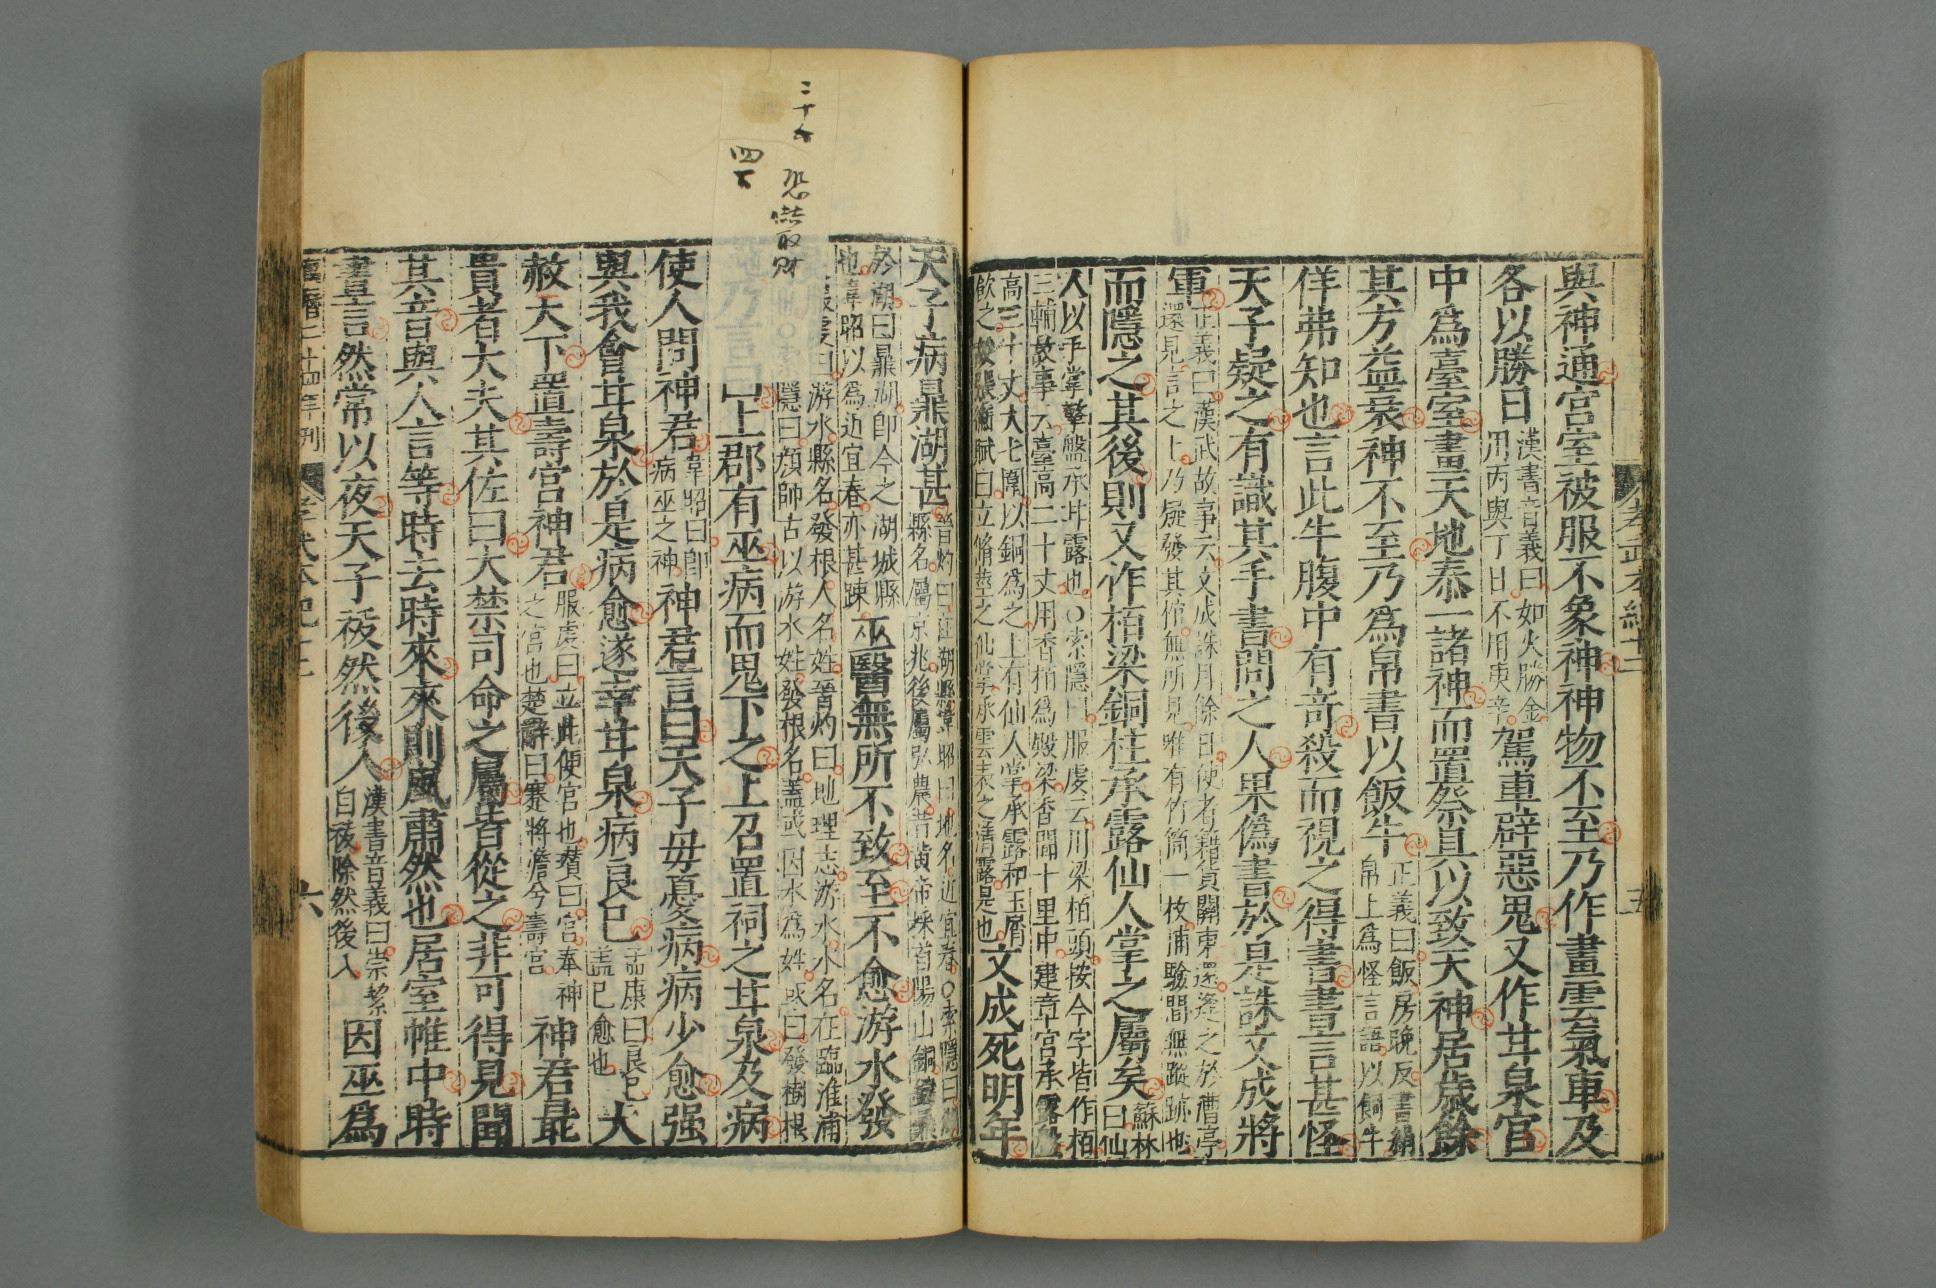 孝武本紀十二
五
與神通宮室被服不象神神物不至乃作畫雲氣車及
各以勝日漢書音義曰如火勝金用丙與丁日不用庚辛駕車辟惡鬼又作甘泉宮
中爲臺室畫天地泰一諸神而置祭具以致天神居歲餘
其方益衰神不至乃爲帛書以飯牛正義曰飯房晚反書絹帛上爲怪言語以飼牛
佯弗知也言此牛腹中有奇殺而視之得書書言甚怪
天子疑之有識其手書問之人果僞書於是誅文成將
軍正義曰漢武故事云文成誅月餘日使者籍貨關東還逢之於漕亭還見言之上乃疑發其棺無所見唯有竹筒一枚捕驗間無蹤跡也
而隱之其後則又作栢梁銅柱承露仙人掌之屬矣蘇林曰仙
人以手掌擎盤承甘露也○索隱曰服虔云用梁栢頭按今字皆作栢三輔故事云臺高二十丈用香栢爲殿梁香聞十里中建章宮承露盤
高三十丈大七圍以銅爲之上有仙人掌承露和玉屑飲之故張衡賦曰立脩莖之仙掌承雲表之清露是也文成死明年
天子病鼎湖甚晉灼曰在湖縣韋昭曰地名近宜春○索隱曰湖縣名屬京兆後屬弘農昔黃帝採首陽山銅鑄鼎
於湖曰鼎湖即今之湖城縣也韋昭以爲近宜春亦甚疎巫醫無所不致至不愈游水發
服虔曰游水縣名發根人名姓晉灼曰地理志游水水名在臨淮浦隱曰顔師古以游水姓發根名蓋或因水爲姓或曰發樹根
曰上郡有巫病而鬼下之上召置祠之甘泉及病
使人問神君韋昭曰即病巫之神神君言曰天子毋憂病病少愈强
與我會甘泉於是病愈遂幸甘泉病良已孟康曰良已蓋已愈也大
赦天下置壽宮神君服虔曰立此便宮也瓚曰宮奉神之宮也楚辭曰蹇將澹兮壽宮神君最
貴者大夫其佐曰大禁司命之屬皆從之非可得見聞
其音與人言等時去時來來則風肅然也居室帷中時
晝言然常以夜天子祓然後入漢書音義曰崇絜自祓除然後入因巫爲
萬曆二十四年刊
孝武本紀十二
六
二十六
恐嚇取財
四六